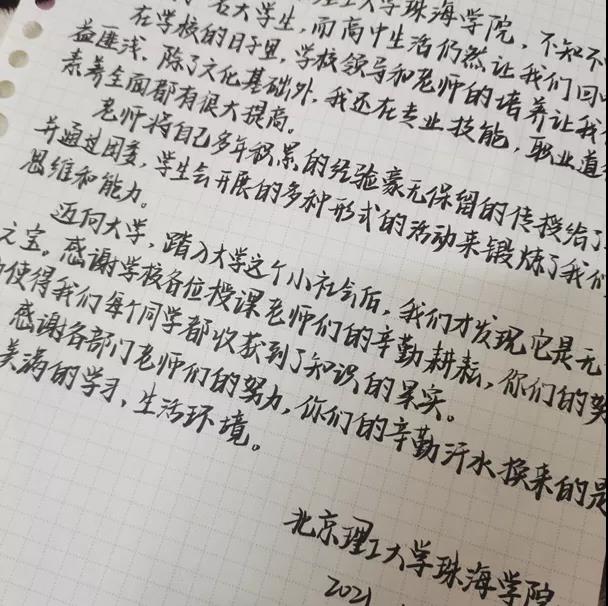 名大学生,而高中生活仍然让我们回
理工大学珠海学院,不知不
在学校的日子里,学校领导和老师的培养让我
益匪浅。除了文化基础外,我还在专业技能,职业道
素养全面都有很大提高。
老师将自己多年积累的经验豪无保留的传授给了
并通过团委,学生会开展的多种形式的活动来锻炼了我们
思维和能力。
迈向大学,踏入大学这个小社会后,我们才发现它是无
之宝。感谢学校各位授课老师们的辛勤耕耘,你们的努
使得我们每个同学都收获到了知识的果实。
感谢各部门老师们的努力,你们的辛勤汗水换来的是
美满的学习、生活环境。
北京理工大学珠海学院
2021